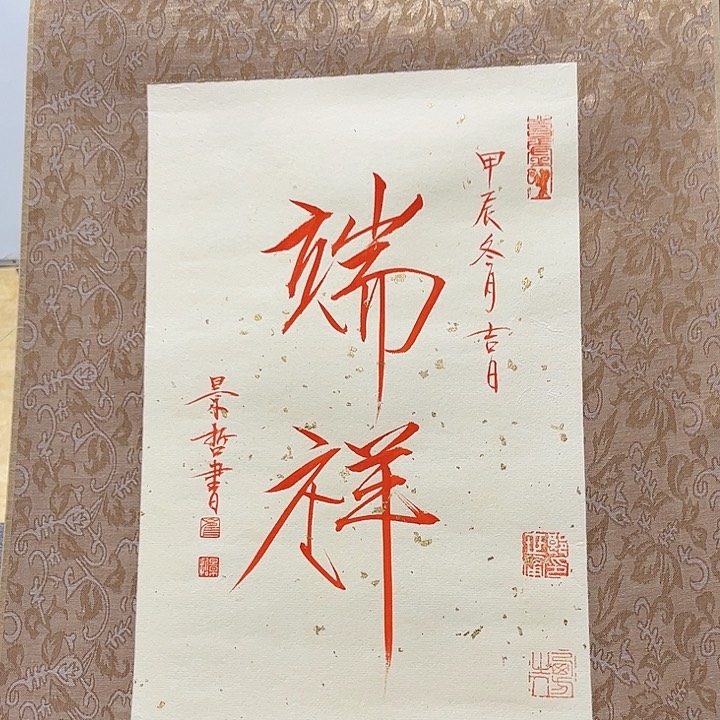 甲辰冬月吉日
端祥
景哲書